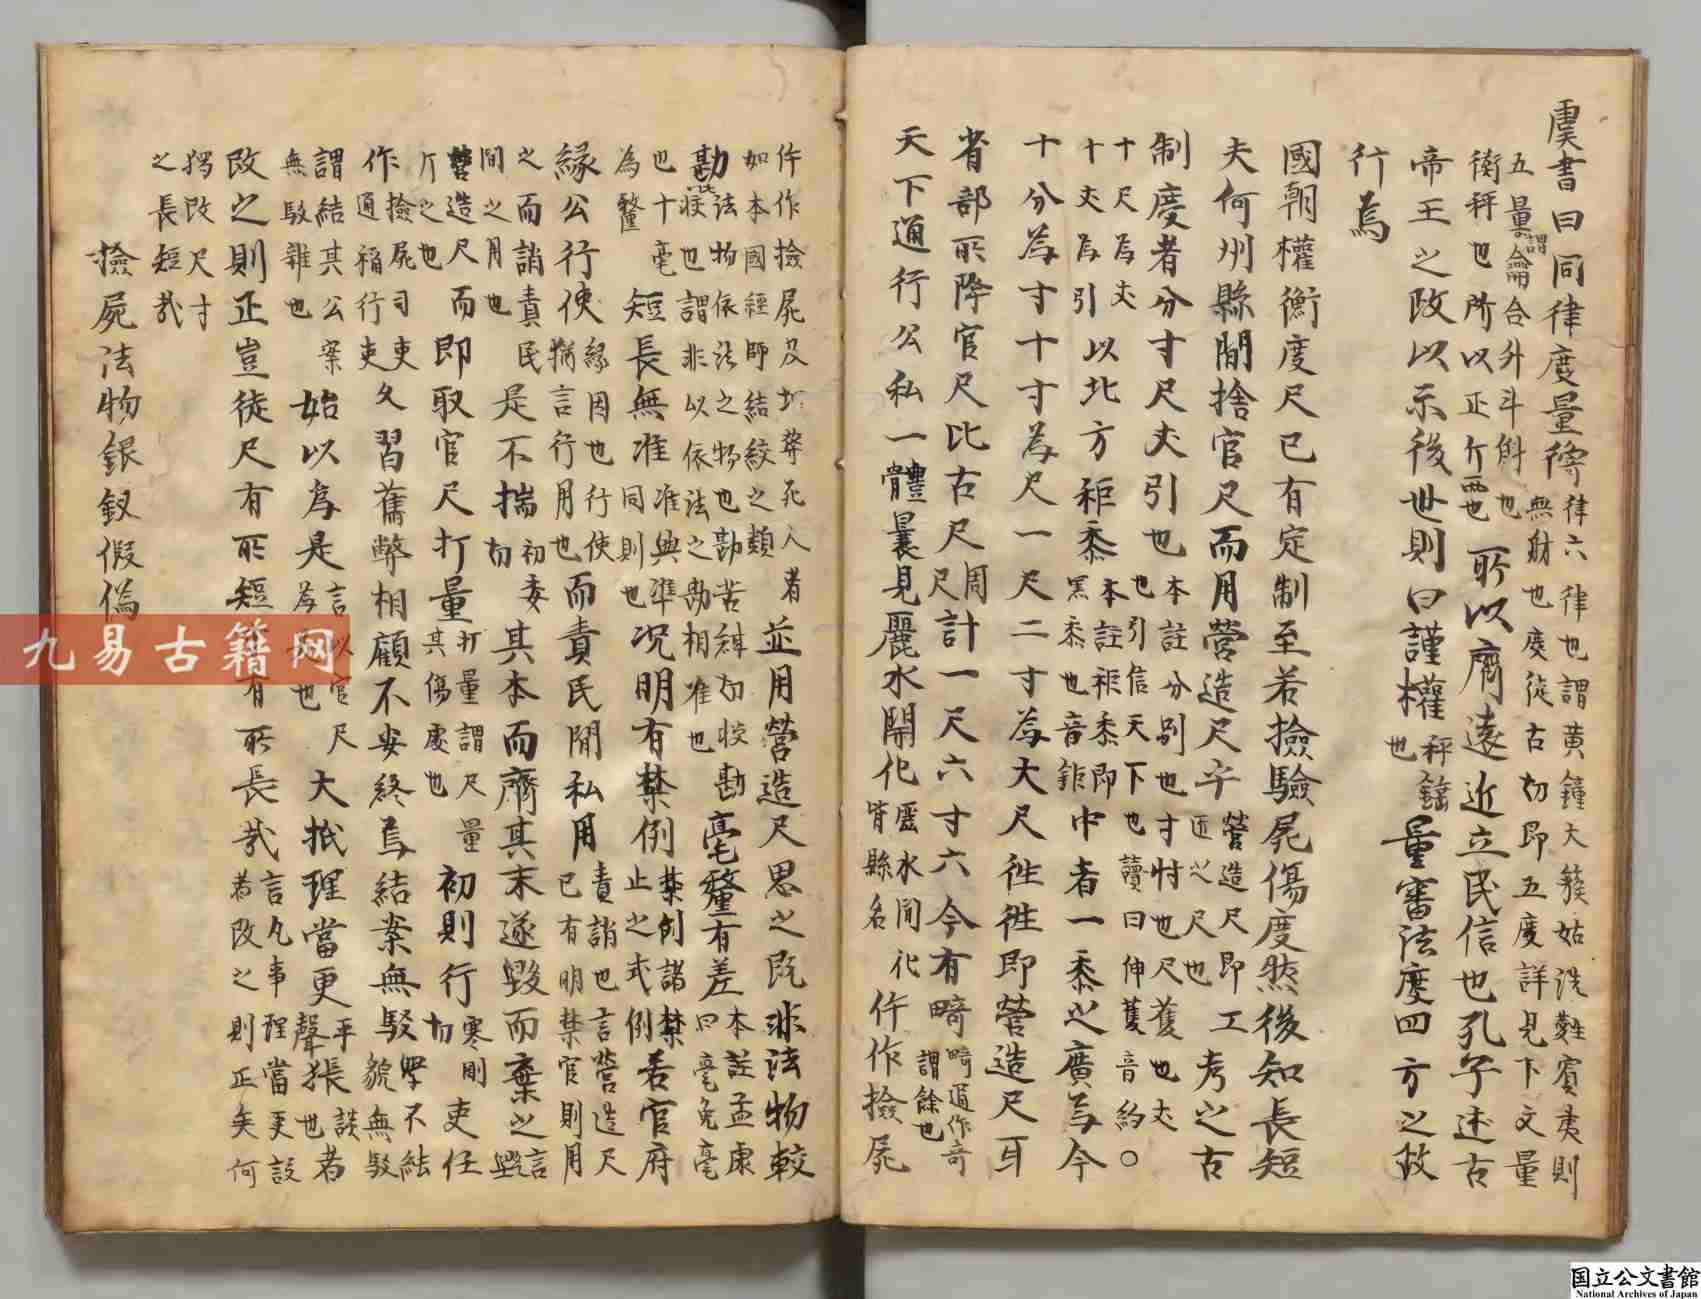 虞書曰同律度量衡律六律也謂黃鐘大簇姑洗蕤賓夷則
無射也度徒古切即五度詳見下文量
五量謂龠合升斗斛也
衡秤也所以正斤兩也所以齊遠近立民信也孔子述古
帝王之政以示後世則曰謹權秤錘也量審法度四方之政
行焉
國朝權衡度尺已有定制至若撿驗屍傷度然後知長短
夫何州縣間捨官尺而用營造尺乎營造尺即工匠之尺也考之古
制度者分寸尺丈引也本註分別也寸忖也尺蒦也丈
也引信天下也讀曰伸蒦音約○
十尺為丈
十丈為引以北方秬黍本註秬黍即
黑黍也音鉅中者一黍之廣為今
十分為寸十寸為尺一尺二寸為大尺徃徃即營造尺耳
省部所降官尺比古尺周尺計一尺六寸六今有畸畸通作奇
謂餘也
天下通行公私一體曩見麗水開化麗水開化
皆縣名仵作撿屍
仵作撿屍及埋葬死人者
如本國經師結絞之類並用營造尺思之既非法物較
勘法物依法之物也勘苦紺切校勘
也謂非以依法之勘相准也毫釐有差本註孟康
曰毫兔毫
也十毫
為釐短長無准准與準
同則也况明有禁例禁創諸禁
止之式例若官府
緣公行使緣因也行使
猶言行用也而責民間私用責誚也言營造尺
已有明禁官則用
之而誚責民
間之用也是不揣初委切其本而齊其末遂毀而棄之言毀
營造尺而
斤之也即取官尺打量打量謂尺量
其傷處也初則行切寒剛吏任
作撿屍司吏
通稱行吏久習舊弊相顧不安終焉結案無駁學不結
貌無駁
謂結其公案
無駁雜也始以為是言以官尺
為是也大抵理當更平聲張也談者
改之則正豈徒尺有所短有所長哉言凡事理當更設
若改之則正矣何
獨改尺寸
之長短哉
撿屍法物銀釵假偽
九易古籍网
国立公文書館
National Archives of Japan